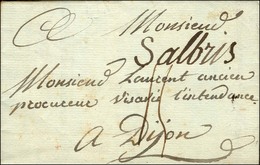 Monsieur
Salbris
Monsieur Laurent ancien
procureur
l'intendance
A Dijon